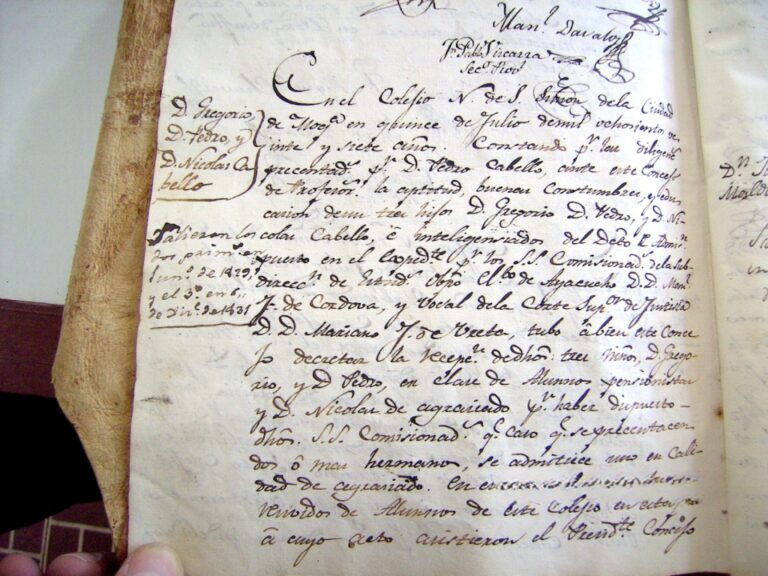 Man.l Davalos
J.n Pablo Vizcarra
Sec.o Pro.l
D. Gregorio,
D. Pedro, y
D. Nicolas Ca
bello
Salieron los
dos prim.s en
de 1829,
y el 3.o en 6
de Dic.e de 1831
En el Colesio N. de S. Simon de la Ciudad
de Moq.a en quince de Julio de mil ochosientos ve
inte y siete años. Constando p.r las diligen.s
precentad.s p.r D. Pedro Cabello, ante este Concejo
de Profesor.s la aptitud, buenas Constumbres, y edu
cacion de sus tres hijos D. Gregorio D. Pedro, y D. Ni
colas Cabello, é inteligensiados del Deto.
puesto en el Exped.te p.r los S.S. Comisionad.s de la Sub
direcc.n de el Obpo. El.to de Ayacucho D.D. Man.l
J. de Cordova, y Vocal de la Corte Sup.r de Justisia
D.D. Mariano J. de Ureta, tubo á bien este Conce
jo decretar la recep.n de dhos. tres niños, D. Grego
rio, y D. Pedro, en clase de Alumnos pensionistas
y D. Nicolas de agraciado p.r haber dispuesto
dhos. S.S. Comisionad.s q.e caso q.e se precentacen
dos ó mas hermanos, se admitiece uno en Cali
dad de agraciado. En
revividos de Alumnos de este Colesio en este
á cuyo acto asistieron el Concejo
D.n